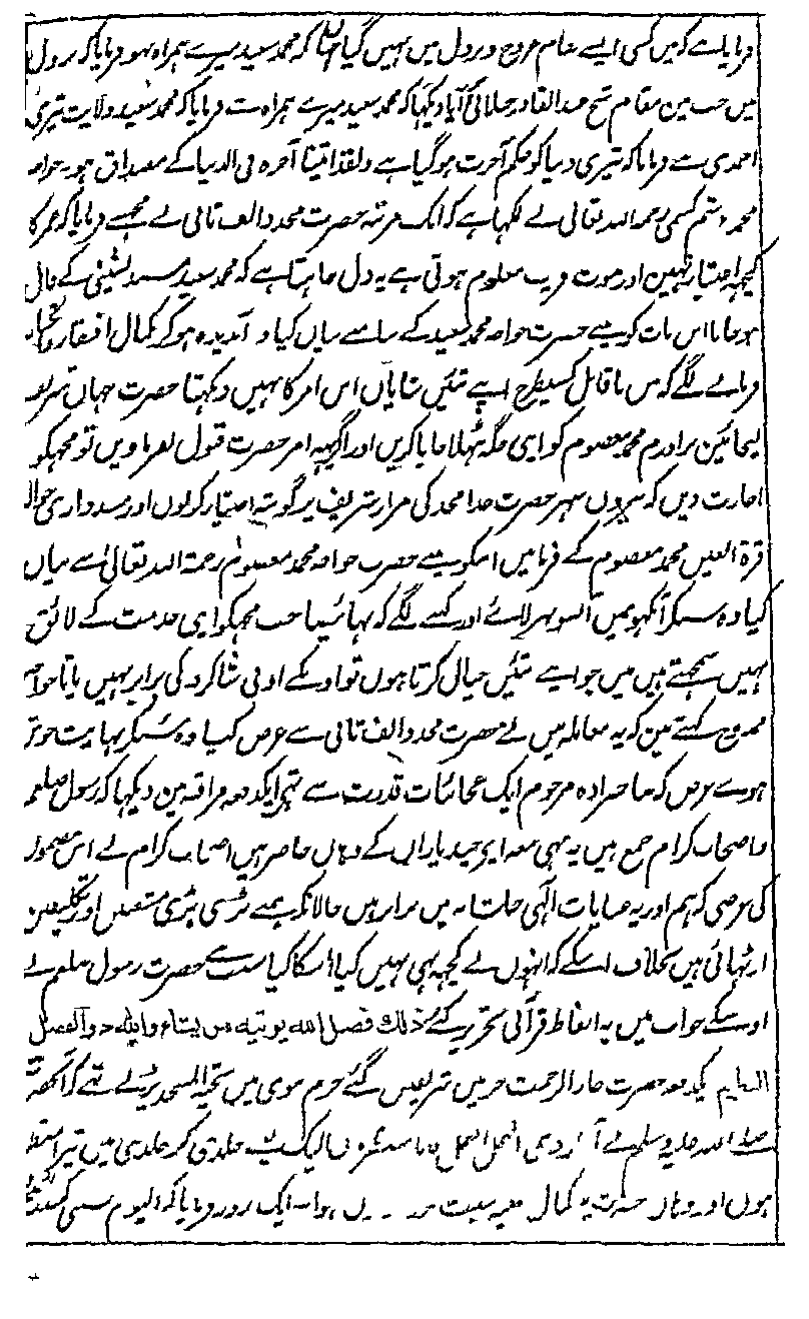 فرمایا ہے کہ میں کسی ایسے مقام عروج و نزول میں نہیں گیا کہ محمد سعید میرے ہمراہ نہو فرمایا کہ نزول
میں جب میں مقام شیخ عبدالقادر جیلانی آیا دیکھا کہ محمد سعید میرے ہمراہ ہے فرمایا کہ محمد سعید ولایت تیری
احمدی ہے فرمایا کہ تیری دنیا کو حکم آخرت ہو گیا ہے ولقد آتینا آخرہ فی الدنیا کے مصداق ہو خواجہ
محمد ہاشم کشمی رحمہ اللہ تعالی نے لکھا ہے کہ ایک مرتبہ حضرت مجدد الف ثانی نے مجھسے فرمایا کہ عمر کا
کچھہ اعتبار نہین اور موت قریب معلوم ہوتی ہے یہ دل چاہتا ہے کہ محمد سعید مسند نشینی کے قابل
ہو جاتا اس بات کو مینے حضرت خواجہ محمد سعید کے سامنے بیان کیا وہ آبدیدہ ہو کر بکمال افتقار
فرمانے لگے کہ میں ناقابل کسیطرح اپنے تئیں شایاں اس امر کا نہیں دیکھتا حضرت جہاں تشریف
لیجائیں برادرم محمد معصوم کو اپنی جگہ بٹھلا جایا کریں اور اگر یہہ امر حضرت قبول نفرماویں تو مجھکو
اجازت دیں کہ بیروں شہر حضرت جد امجد کی مزار شریف پر گوشہ اختیار کر لوں اور مسند داری حوالہ
قرۃ العین محمد معصوم کے فرمائیں اسکو مینے حضرت خواجہ محمد معصوم رحمۃ اللہ تعالی سے بیان
کیا وہ سنکر آنکھوں میں آنسو بھر لائے اور کہنے لگے کہ بھائی صاحب مجھکو اپنی خدمت کے لائق
نہیں سمجھتے ہیں میں جو اپنے تئیں خیال کرتا ہوں تو اونکے ادنی شاگرد کی برابر نہیں پاتا خواجہ
ممدوح کہتے ہین کہ یہ معاملہ میں نے حضرت مجدد الف ثانی سے عرض کیا وہ سنکر نہایت خوش
ہوے عرض کہ صاحبزادہ مرحوم ایک عجائبات قدرت سے تھے ایکدفعہ مراقبہ مین دیکھا کہ رسول صلعم
و اصحاب کرام جمع ہیں یہ بھی معہ اپنے چند یاراں کے وہاں حاضر ہیں اصحاب کرام نے اس مضمون
کی عرضی کہ ہم اور یہ عنایات الٰہی جلشانہ میں برابر ہیں حالانکہ ہمنے بڑی بڑی مشقتیں اور تکلیفین
اوٹھائی ہیں بخلاف اسکے کہ انہوں نے کچھہ بھی نہیں کیا اسکا کیا سبب ہے حضرت رسول صلعم نے
اوسکے جواب میں یہ الفاظ قرآنی تحریر کئے ذلك فضل الله یوتیه من یشاء والله ذو الفضل
العظیم یکدفعہ حضرت حرمین میں تشریف لیگئے حرم نبوی میں تحیۃ المسجد پڑہتے تھے کہ آنحضرت
صلے اللہ علیہ وسلم نے آواز دی العجل العجل جلدی کر جلدی میں تیرا منتظر
ہوں اور وہاں حضرت پر کمال ایک روز فرمایا کہ الیوم